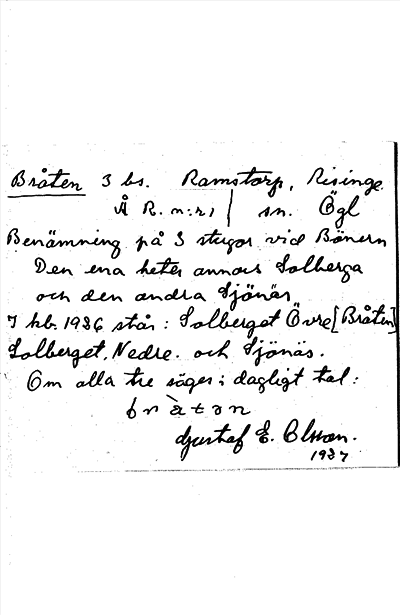 Bråten 3 bs. Ramstorp, Risinge
Å R. n:r 1 sn. Ögl
Benämning på 3 stugor vid Bönern
Den ena heter annars Solberga
och den andra Sjönäs
I kb. 1936 står: Solberget Övre [Bråten]
Solberget, Nedre. och Sjönäs.
Om alla tre säges i dagligt tal:
Gustaf E. Olsson.
1937